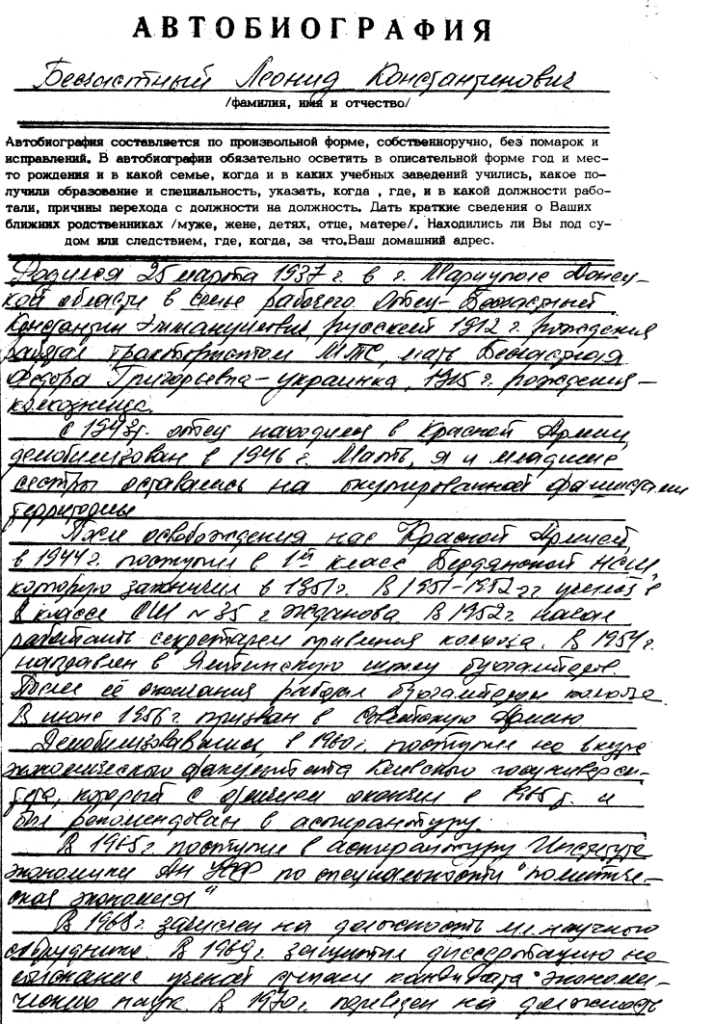 АВТОБИОГРАФИЯ
Бесчастный Леонид Константинович
/фамилия, имя и отчество/
Автобиография составляется по произвольной форме, собственноручно, без помарок и
исправлений. В автобиографии обязательно осветить в описательной форме год и мес-
то рождения и в какой семье, когда и в каких учебных заведений учились, какое по-
лучили образование и специальность, указать, когда , где, и в какой должности рабо-
тали, причины перехода с должности на должность. Дать краткие сведения о Ваших
ближних родственниках /муже, жене, детях, отце, матере/. Находились ли Вы под су-
дом или следствием, где, когда, за что.Ваш домашний адрес.
Родился 25 марта 1937 г. в г. Мариуполе Донец-
кой области в семье рабочего. Отец - Бесчастный
Константин Эммануилович, русский 1912 г. рождения
работал трактористом МТС, мать Бесчастная
Федора Григорьевна - украинка, 1915 г. рождения -
колхозница.
С 1943г. отец находился в Красной Армии,
демобилизован в 1946 г. Мать, я и младшие
сестры оставались на окупированной фашистами
территории
После освобождения нас Красной Армией,
в 1944 г. поступил в 1й класс Бердянской НСШ,
которую закончил в 1951г. В 1951-1952 гг учился в
8 классе СШ № 35 г. Жданова. В 1952 г. начал
работать секретарем правления колхоза. В 1954 г.
направлен в Ялтинскую школу бухгалтеров.
После её окончания работал бухгалтером колхоза.
В июне 1956 г. призван в Советскую Армию.
Демобилизовавшись в 1960 г. поступил на курс
экономического факультета Киевского госуниверси-
тета, который с отличием окончил в 1965 г. и
был рекомендован в аспирантуру.
В 1965 г. поступил в аспирантуру Института
экономики АН УССР по специальности "политиче-
ская экономия"
В 1968 г. зачислен на должность мл. научного
сотрудника. В 1969 г. защитил диссертацию на
соискание ученой степени кандидата экономи-
ческих наук. В 1970 г. переведен на должность